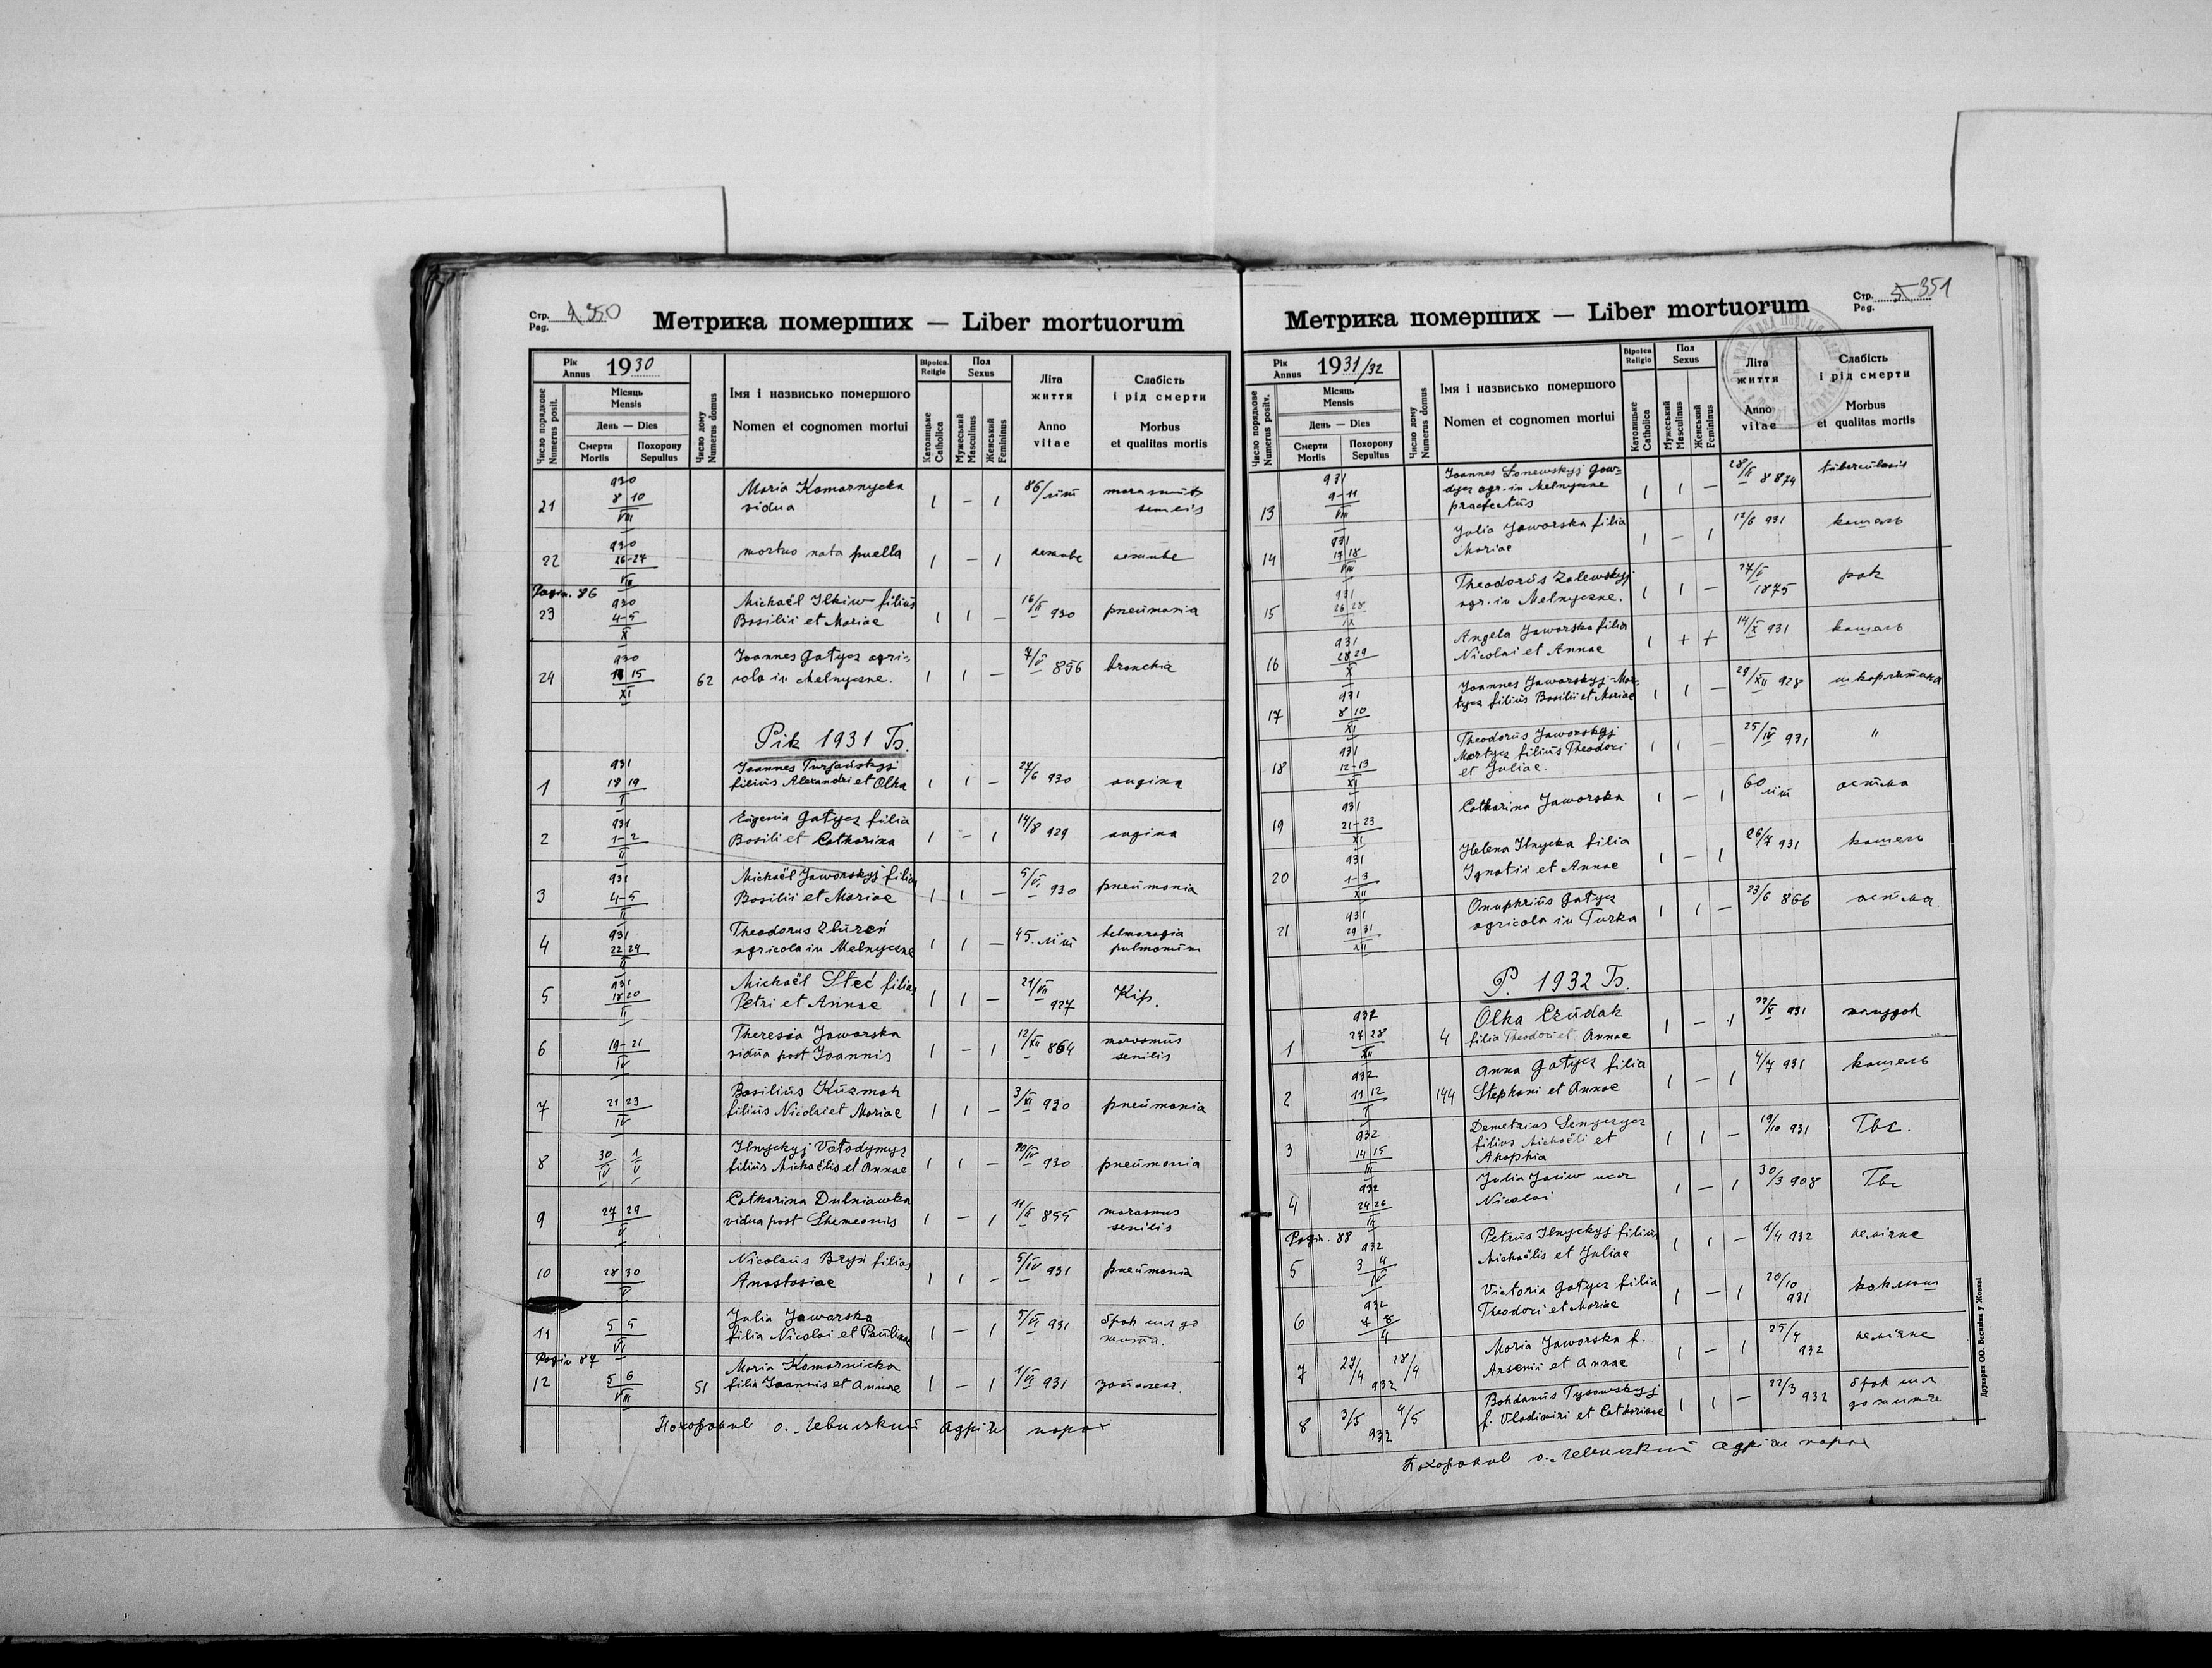 Стр. Pag. 350
Метрика померших — Liber mortuorum
Рік Annus 1930
Число порядкове Numerus posit.
Місяць Mensis
День — Dies
Смерти Mortis
Похорону Sepultus
Число дому Numerus domus
Імя і назвисько помершого
Nomen et cognomen mortui
Віроісп. Religio
Католицьке Catholica
Пол Sexus
Мужеський Masculinus
Женський Femininus
Літа життя
Anno vitae
Слабість і рід смерти
Morbus et qualitas mortis
21 930 8 10 VIII Maria Komarnycka 1 – 1 86/літ
vidua
22 930 26-27 mortuo nata puella 1 – 1
Pagin. 86
23 930 4-5 X Michaël Ilkiw filius 1 1 – 16/II 930 pneumonia
Basilii et Mariae
24 930 15 XI 62 Joannes Gatycz agri- 1 1 – 7/V 856 bronchia
cola in Melnyczne.
Рік 1931 Tb.
1 931 18 19 I Joannes Turjańskyj 1 1 – 27/6 930 angina
filius Alexandri et Olha
2 931 1-2 II Eugenia Gatycz filia 1 – 1 14/8 929 angina
Basili et Catharina
3 931 4-5 II Michaël Jaworskyj filius 1 1 – 5/VI 930 pneumonia
Basilii et Mariae
4 931 22 24 II Theodorus 1 1 – 45. літ
agricola in Melnyczne pulmonum
5 931 18 20 II Michaël Steć filius 1 1 – 21/VII 927 Кір.
Petri et Annae
6 19-21 IV Theresia Jaworska 1 – 1 12/XII 864 marasmus
vidua post Joannis senilis
7 21 23 IV Basilius Kuzmah 1 1 – 3/XI 930 pneumonia
filius Nicolai et Mariae
8 30/IV 1/V Ilnyckyj Votodymyr 1 1 – 930 pneumonia
filius Michaëlis et Annae
9 27 29 V Catharina Dulniawka 1 – 1 855 marasmus
vidua post Shemeonis senilis
10 28 30 V Nicolaus filius 1 1 – 5/IV 931 pneumonia
Anastasiae
11 5 5 VI Julia Jaworska 1 – 1 5/VI 931 брак сил до
filia Nicolai et Paulinae життя.
Pagin 87
12 5 6 VIII 51 Maria Komarnicka 1 – 1 1/VI 931
filia Joannis et Annae
Похоронив о. Левицький Адріян парох
Стр. Pag. 351
Метрика померших — Liber mortuorum
Рік Annus 1931/32
Число порядкове Numerus positv.
Місяць Mensis
День — Dies
Смерти Mortis
Похорону Sepultus
Число дому Numerus domus
Імя і назвисько помершого
Nomen et cognomen mortui
Віроісп. Religio
Католицьке Catholica
Пол Sexus
Мужеський Masculinus
Женський Femininus
Літа життя
Anno vitae
Слабість і рід смерти
Morbus et qualitas mortis
13 931 9-11 VIII Joannes 1 1 – tuberculosis
agr. in Melnyczne
praefectus
14 931 17 18 VIII Julia Jaworska filia 1 – 1 12/6 931 кашель
Mariae
15 931 26 28 IX Theodorus Zalewskyj 1 1 – 27/V 1875 рак
agr. in Melnyczne.
16 931 28 29 X Angela Jaworska filia 1 + + 14/X 931 кашель
Nicolai et Annae
17 931 8 10 XI Joannes Jaworskyj-Mar- 1 1 – 29/XII 928 шкарлятина
tycz filius Basilii et Mariae
18 931 12-13 XI Theodorus Jaworskyj 1 1 – 25/IV 931 "
Martycz filius Theodori
et Juliae.
19 931 21-23 XI Catharina Jaworska 1 – 1 60 літ астма
20 931 1-3 XII Helena Ilnycka filia 1 – 1 26/7 931 кашель
Ignatii et Annae
21 931 29 31 XII Onuphrius Gatycz 1 1 – 23/6 866 астма.
agricola in Turka
P. 1932 Tb.
1 932 27 28 XII 4 Olha Czudak 1 – 1 931
filia Theodori et Annae
2 932 11 12 I 144 Anna Gatycz filia 1 – 1 4/7 931 кашель
Stephani et Annae
3 932 14 15 III Demetrius Senyczycz 1 1 – 19/10 931 Tbc.
filius Michaëli et
4 932 24 26 III Julia 1 – 1 30/3 908 Tbc
Nicolai
Pagin. 88
5 932 3 4 IV Petrus Ilnyckyj filius 1 1 – 1/4 932
Michaëlis et Juliae
6 932 4 Victoria Gatycz filia 1 – 1 20/10 931 коклюш
Theodori et Mariae
7 27/4 28/4 932 Maria Jaworska f. 1 – 1 25/4 932
Arsenii et Annae
8 3/5 4/5 932 Bohdanus Tysowskyj 1 1 – 22/3 932 брак сил
f. Vladimiri et Catharinae до життя
Похоронив о. Левицький Адріян парох
Друкарня ОО. Василіян у Жовкві